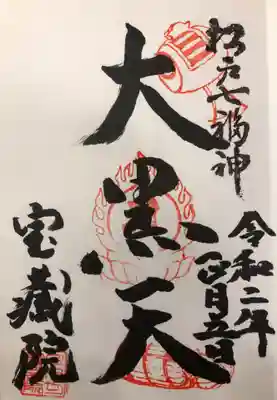 松戸七福神
令和二年
正月五日
大黒天
宝蔵院